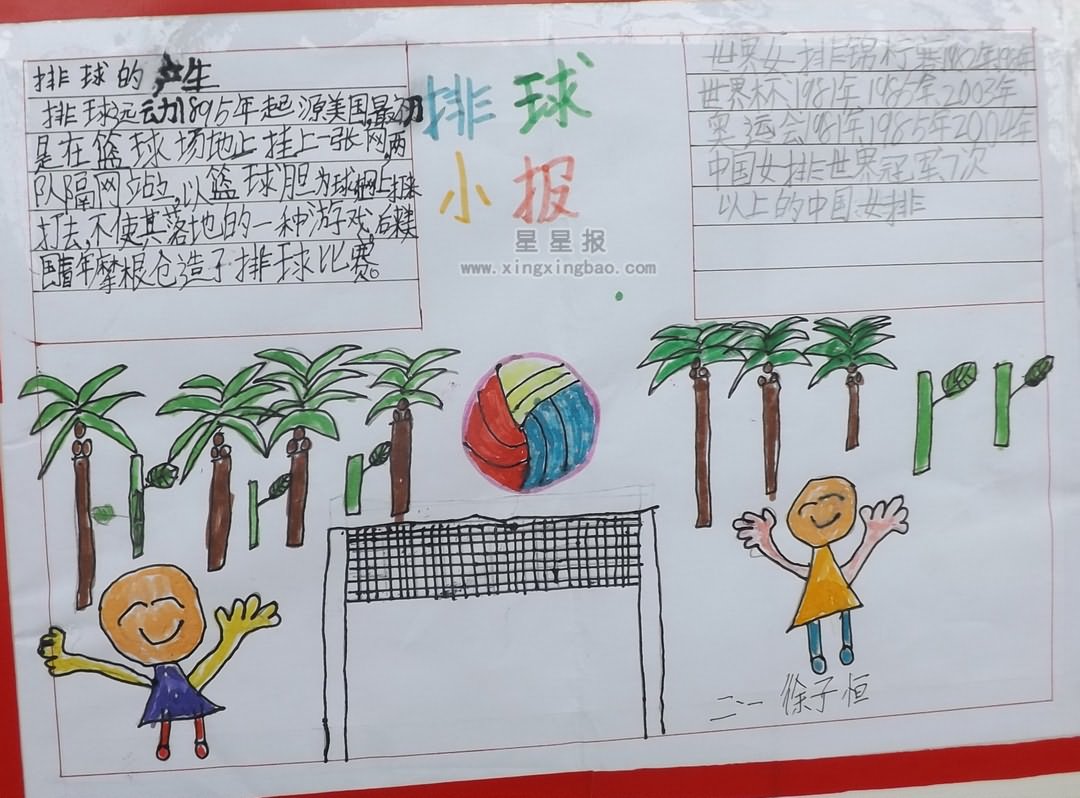 排球的产生
排球运动1895年起源美国,最初
是在篮球场地上挂上一张网,两
队隔网站立,以篮球胆为球网上打来
打去,不使其落地的一种游戏,后
国青年摩根仓造了排球比赛。
排球
小报
星星报
www.xingxingbao.com
世界女排锦标赛1982年1986年
世界杯1981年1985年2003年
奥运会1981年1985年2004年
中国女排世界冠军7次
以上的中国女排
二·一 徐子恒